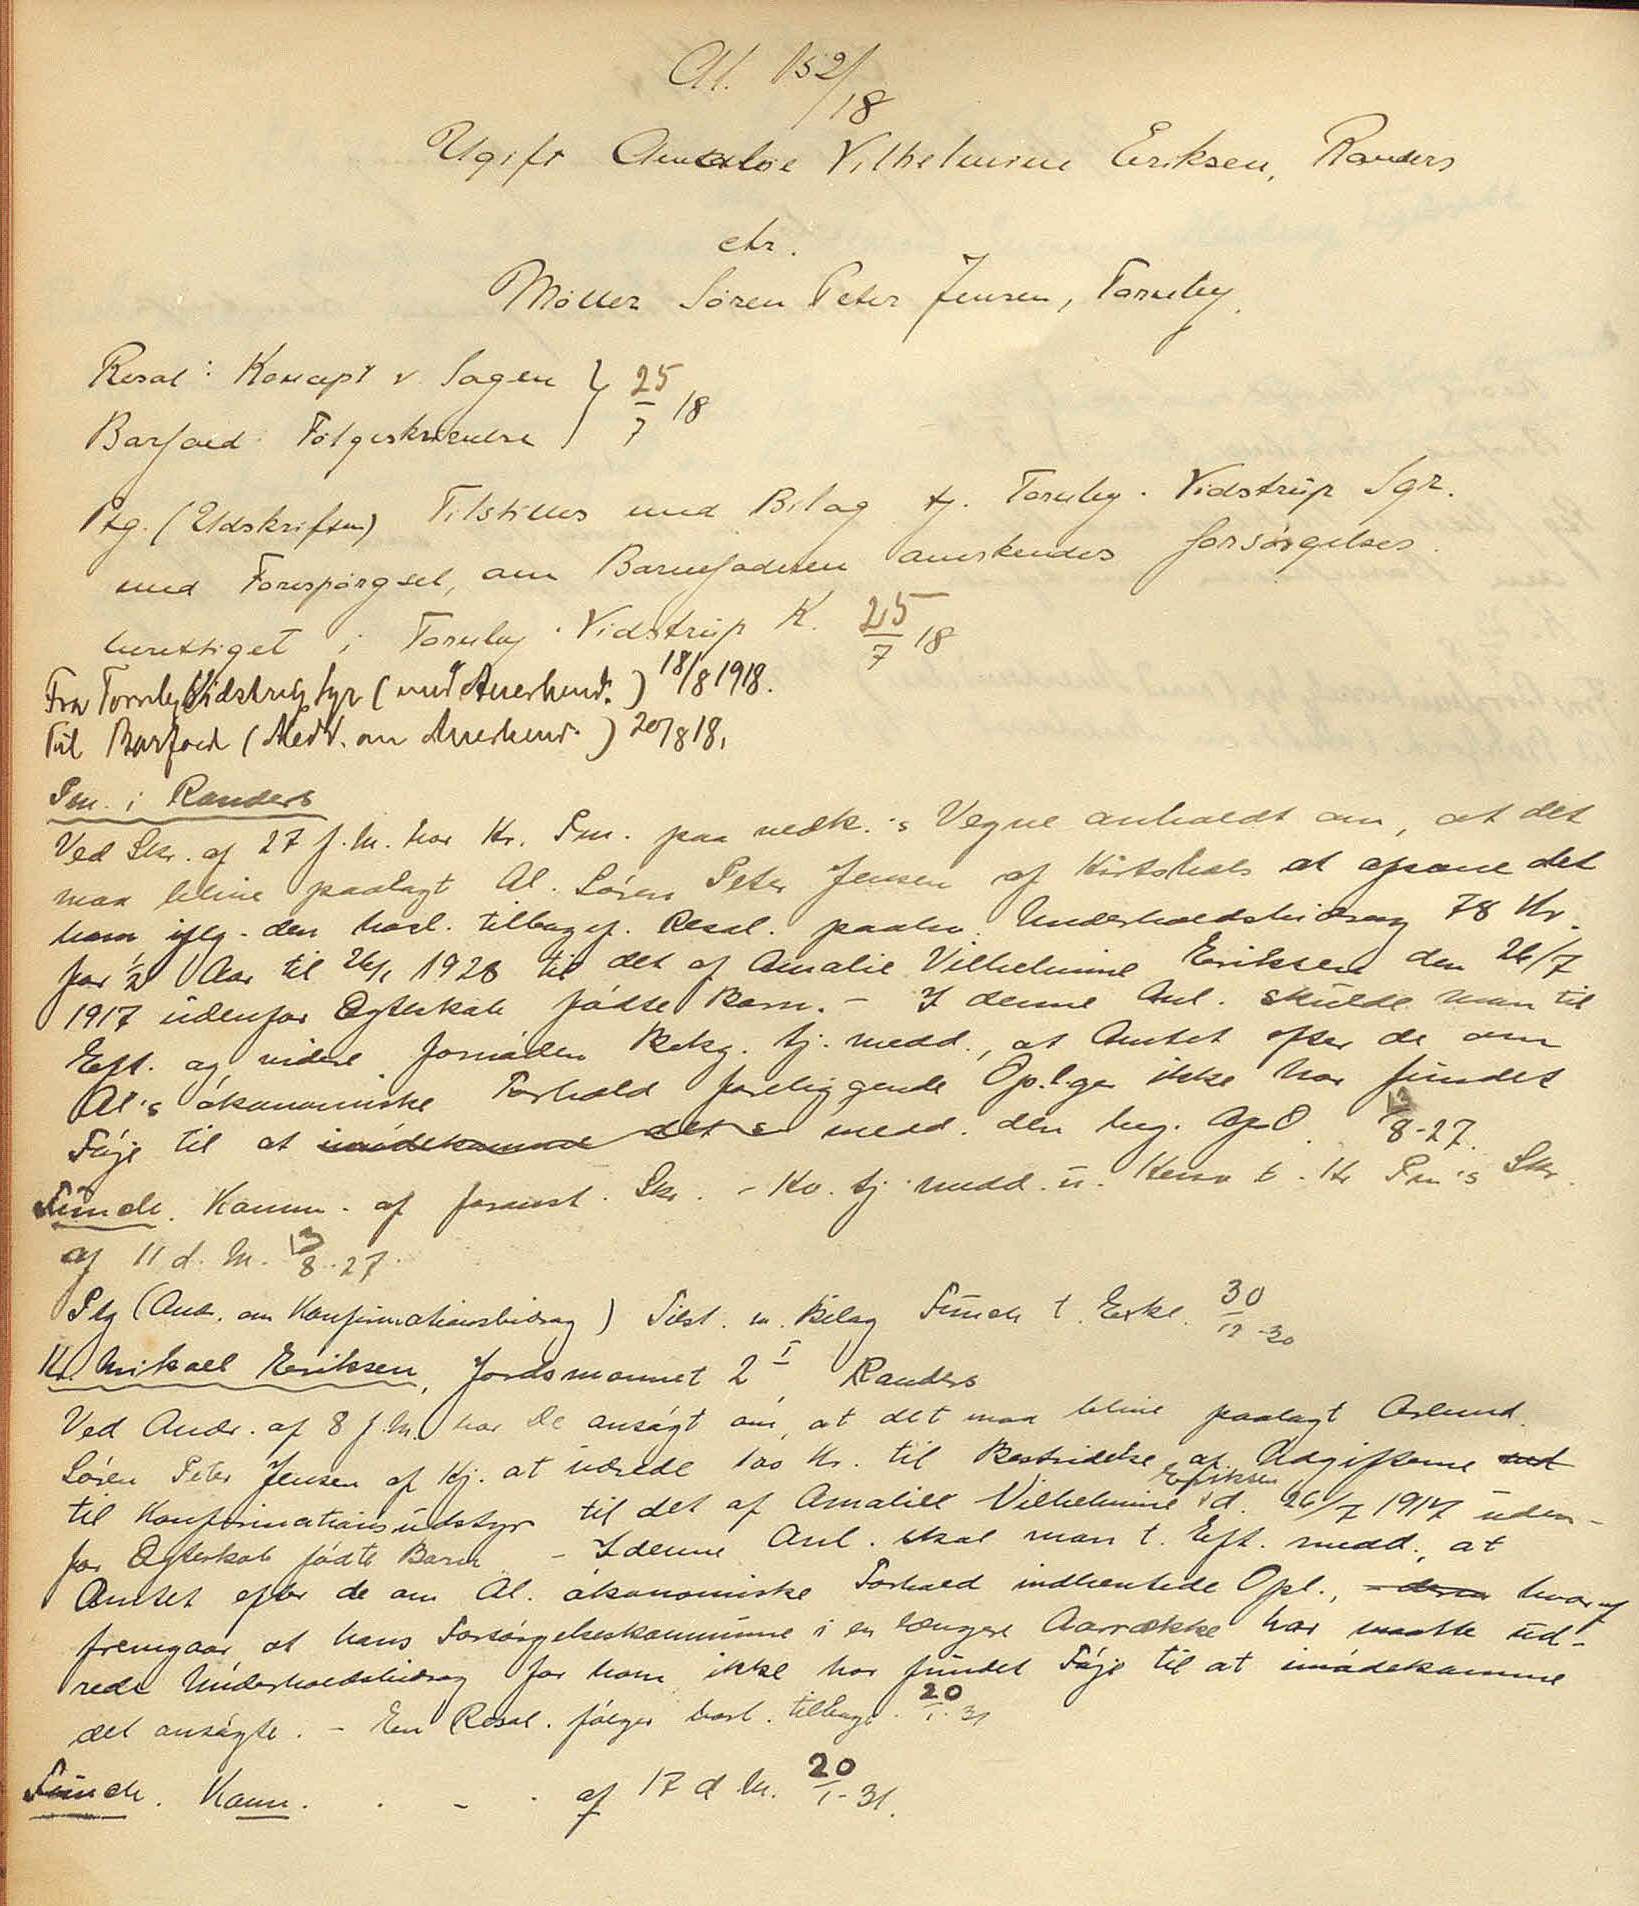 Al. 152/18
Ugift Amalie Vilhelmine Eriksen, Randers
ctr.
Møller Søren Peter Jensen, Tornby.
Resol: Koncept v. Sagen } 25/7 18
Barfoed Følgeskrivelse
Ptg. (Udskriften) Tilstilles med Bilag tj. Tornby. Vidstrup Sgr.
med Forespørgsel, om Barnefaderen anerkendes forsørgelses
berettiget i Tornby. Vidstrup K. 25/7 18
Fra Tornby Vidstrup Sgr (med Anerkend.) 18/8 1918.
Til Barfoed (Medd. om Anerkend.) 20/8 18,
Pm. i Randers
Ved Skr. af 27 f. M. har Hr. Pm. paa vedk.'s Vegne anholdt om, at det
maa blive paalagt Al. Søren Peter Jensen af Hirtshals at afsone det
ham iflg. den hosl. tilbagef. Resol. paahv. Underholdsbidrag 78 Kr.
for ½ Aar til 26/1 1928 til det af Amalie Vilhelmine Eriksen den 26/7
1917 udenfor Ægteskab fødte Barn. - I denne Anl. skulde man til
Eft. og videre fornøden Bekg. tj. medd., at Amtet efter de om
Al's økonomiske Forhold foreliggende Opl.ger ikke har fundet
Føje til at imødekomme det s medd. den beg. Afs. 13/8-27.
Funch. Komm. af foranst. Skr. - Hv. tj. medd. u. Henv t. Hr Pm's Skr.
af 11 d. M. 13/8-27.
Ptg (Andr. om Konfirmationsbidrag) Tilst. m. Bilag Funch t. Erkl. 30/12-30
Hr. Mikael Eriksen, Jordsmonnet 2 I, Randers
Ved Andr. af 8 f. M. har De ansøgt om, at det maa blive paalagt
Søren Peter Jensen af Hj. at udrede 100 Kr. til Bestridelse af Udgifterne ved
til Konfirmationsudstyr til det af Amalie Vilhelmine Eriksen d. 26/7 1917 uden-
for Ægteskab fødte Barn - I denne Anl. skal man t. Eft. medd., at
Amtet efter de om Al. økonomiske Forhold indhentede Opl., hvoraf
fremgaar, at hans Forsørgelseskommune i en længere Aarrække har maatte ud-
rede Underholdsbidrag for ham, ikke har fundet Føje til at imødekomme
det ansøgte. - En Resol. følger hosl. tilbage. 20/1-31
Funch. Komm. . - . af 17 d M. 20/1-31.